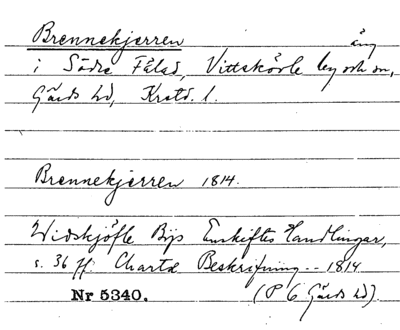 Brennekjerren äng
i Södre Fålad, Vittskövle by och sn,
Gärds hd, Kristd. l.
Brennekjerren 1814.
Widskjöfle Bys Enskiftes Handlingar,
s. 36 ff: Charta Beskrifning -- 1814
Nr 5340. (P 6 Gärds hd).